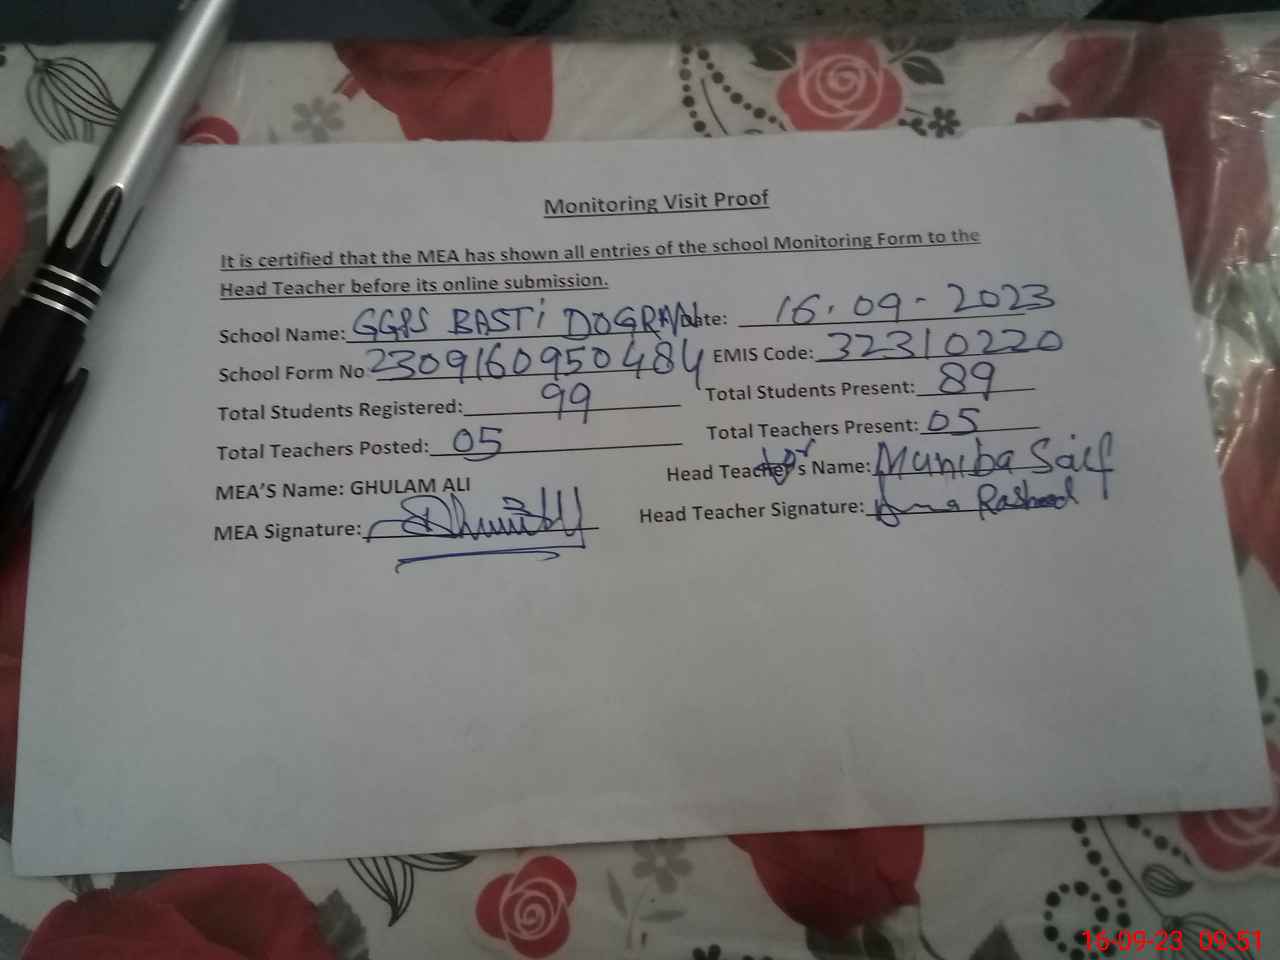 Monitoring Visit Proof
It is certified that the MEA has shown all entries of the school Monitoring Form to the
Head Teacher before its online submission.
School Name: GGPS BASTI DOGRAN Date: 16.09-2023
School Form No 2309160950484 EMIS Code: 32310220
Total Students Registered: 99 Total Students Present: 89
Total Teachers Posted: 05 Total Teachers Present: 05
MEA'S Name: GHULAM ALI Head Teacher's Name: Muniba Saif
MEA Signature: Head Teacher Signature: Rasheed
16-09-23 09:51